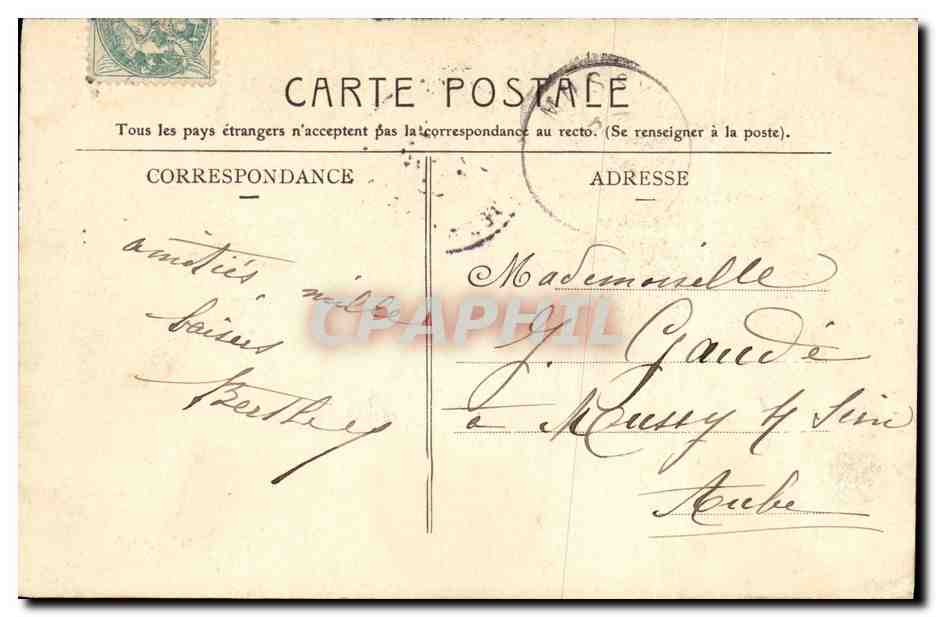 CARTE POSTALE
Tous les pays étrangers n'acceptent pas la correspondance au recto. (Se renseigner à la poste).
CORRESPONDANCE
amitiés, mille
baisers
Berthe
ADRESSE
Mademoiselle
J. Gaudé
à Mussy s/ Seine
Aube
CPAPHIL